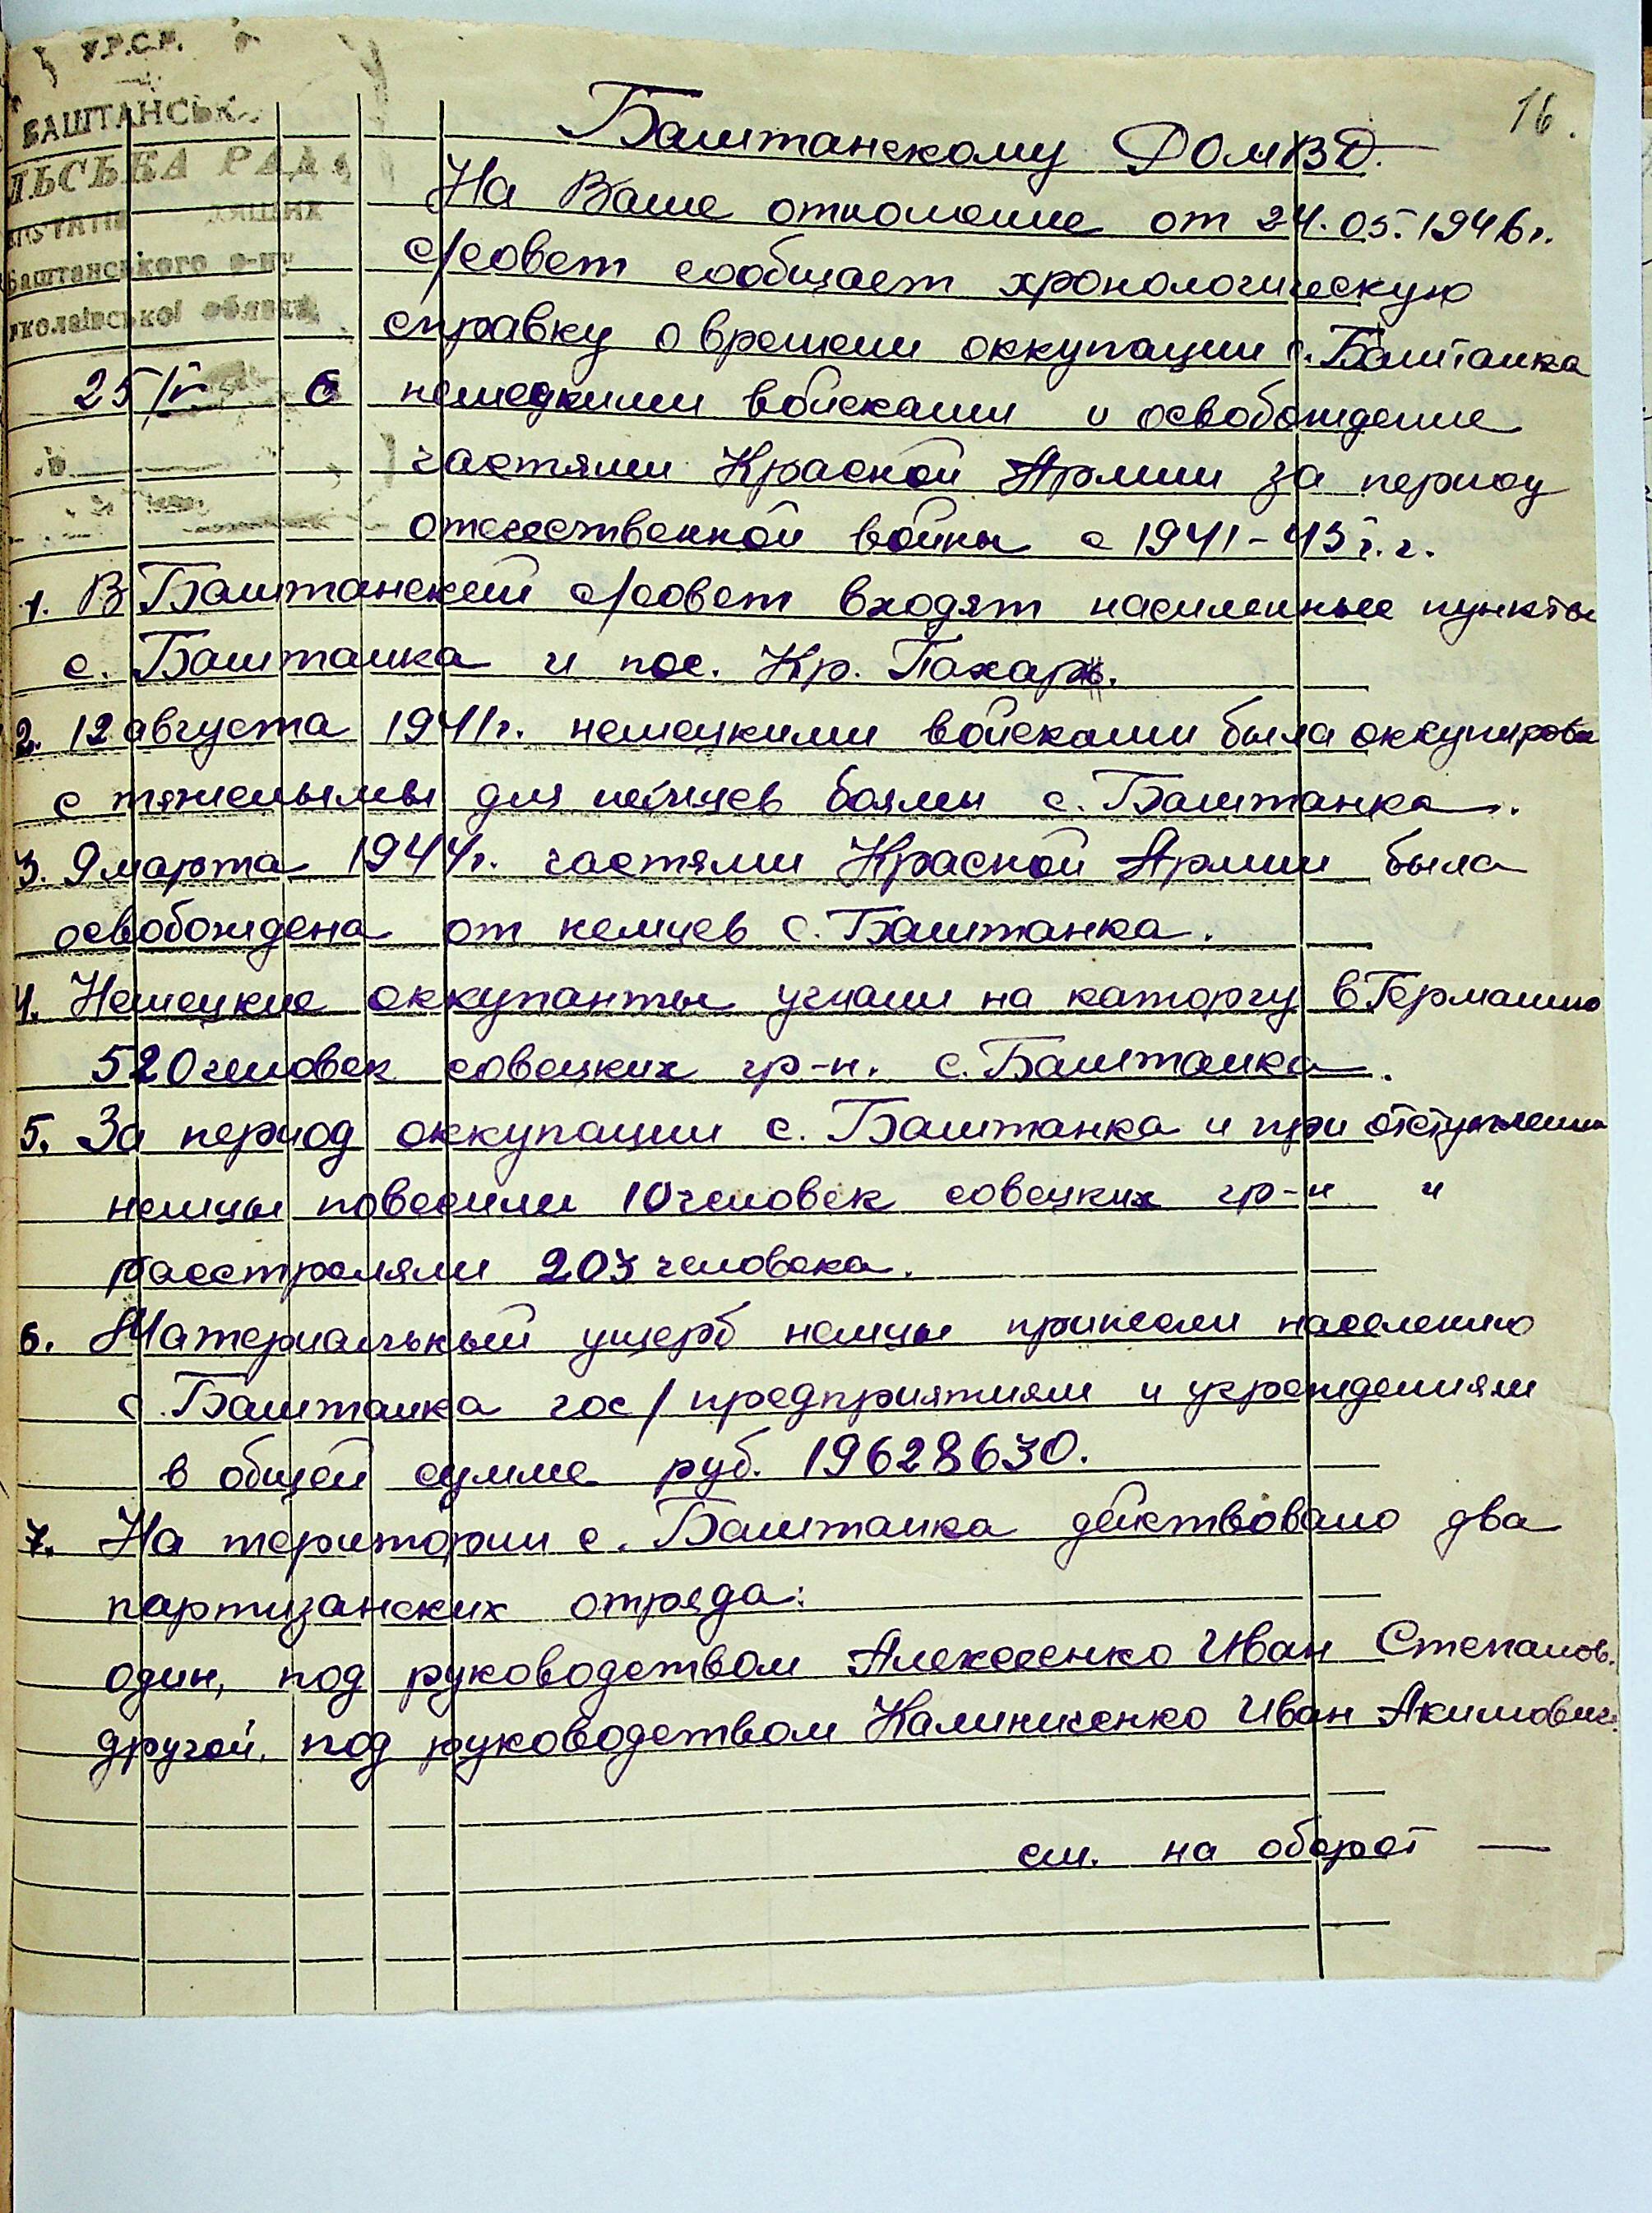 16.
У.Р.С.Р.
БАШТАНСЬК
ЛЬСЬКА РАДА
Баштанського р-ну
иколаївської області
25/V 6
Баштанскому РОМВД.
На Ваше отношение от 24.05.1946г.
с/совет сообщает хронологическую
справку о времени оккупации с. Баштанка
немецкими войсками и освобождение
частями Красной Армии за период
отечественной войны с 1941-43 г.г.
1. В Баштанский с/совет входят населенные пункты
с. Баштанка и пос. Кр. Пахарь.
2. 12 августа 1941г. немецкими войсками была оккупирова
с тяжелыми для немцев боями с. Баштанка.
3. 9 марта 1944г. частями Красной Армии была
освобождена от немцев с. Баштанка.
4. Немецкие оккупанты угнали на каторгу в Германию
520 человек совецких гр-н. с. Баштанка.
5. За период оккупации с. Баштанка и при отступлении
немцы повесили 10 человек совецких гр-н и
расстреляли 203 человека.
6. Материальный ущерб немцы принесли населению
с. Баштанка гос/предприятиям и учреждениям
в общей сумме руб. 19628630.
7. На територии с. Баштанка действовало два
партизанских отряда:
один, под руководством Алексеенко Иван Степанов.
другой, под руководством Калиниченко Иван Акимович.
см. на оборот —